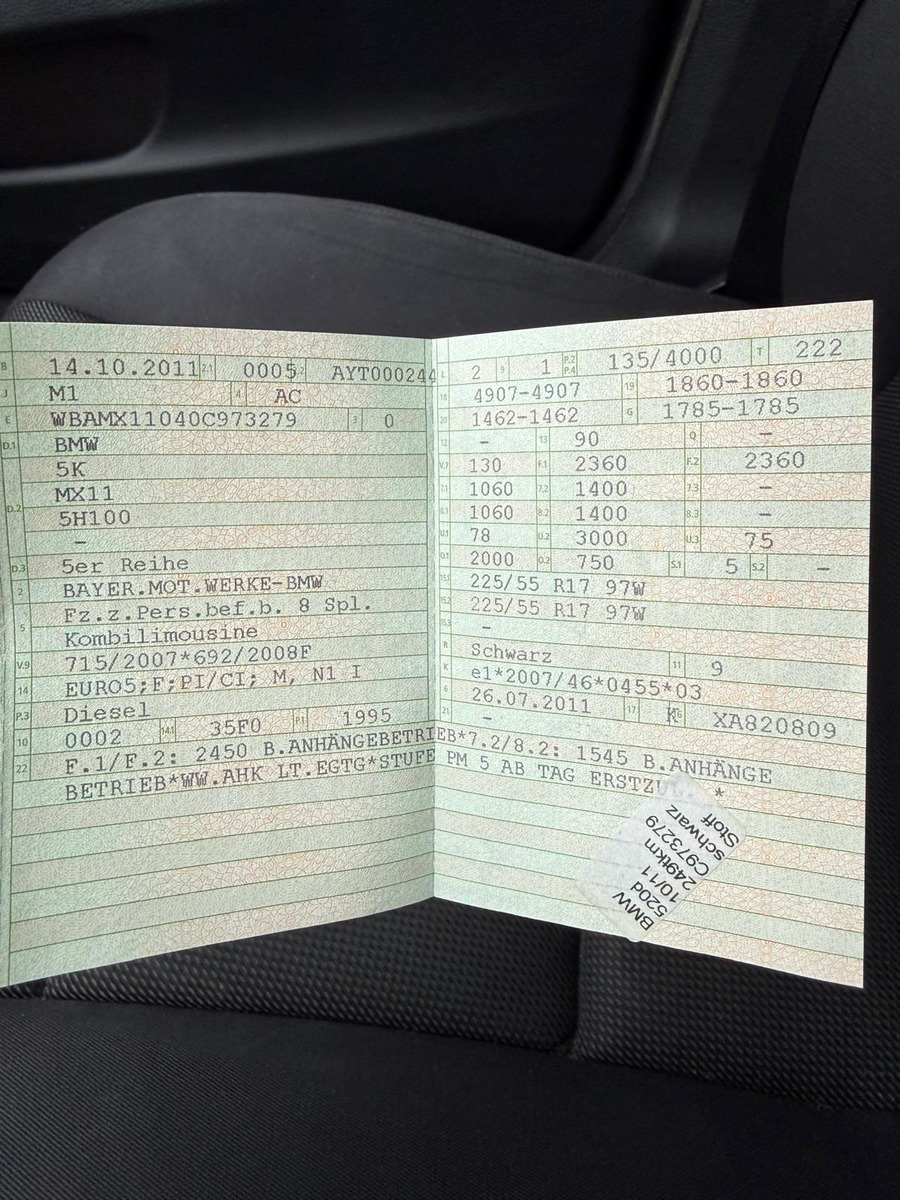 B 14.10.2011 2.1 0005 2.2 AYT000244
J M1 4 AC
E WBAMX11040C973279 3 0
D.1 BMW
5K
D.2 MX11
5H100
–
D.3 5er Reihe
2 BAYER.MOT.WERKE-BMW
5 Fz.z.Pers.bef.b. 8 Spl.
Kombilimousine
V.9 715/2007*692/2008F
14 EURO5;F;PI/CI; M, N1 I
P.3 Diesel
10 0002 14.1 35F0 P.1 1995
L 2 9 1 P.2 P.4 135/4000 T 222
18 4907-4907 19 1860-1860
20 1462-1462 G 1785-1785
12 – 13 90 Q –
V.7 130 F.1 2360 F.2 2360
7.1 1060 7.2 1400 7.3 –
8.1 1060 8.2 1400 8.3 –
U.1 78 U.2 3000 U.3 75
O.1 2000 O.2 750 S.1 5 S.2 –
15.1 225/55 R17 97W
15.2 225/55 R17 97W
15.3 –
R Schwarz 11 9
K e1*2007/46*0455*03
6 26.07.2011 17 K 16 XA820809
21 –
22 F.1/F.2: 2450 B.ANHÄNGEBETRIEB*7.2/8.2: 1545 B.ANHÄNGE
BETRIEB*WW.AHK LT.EGTG*STUFE PM 5 AB TAG *
BMW
520d
10/11
249tkm
C973279
schwarz
Stoff